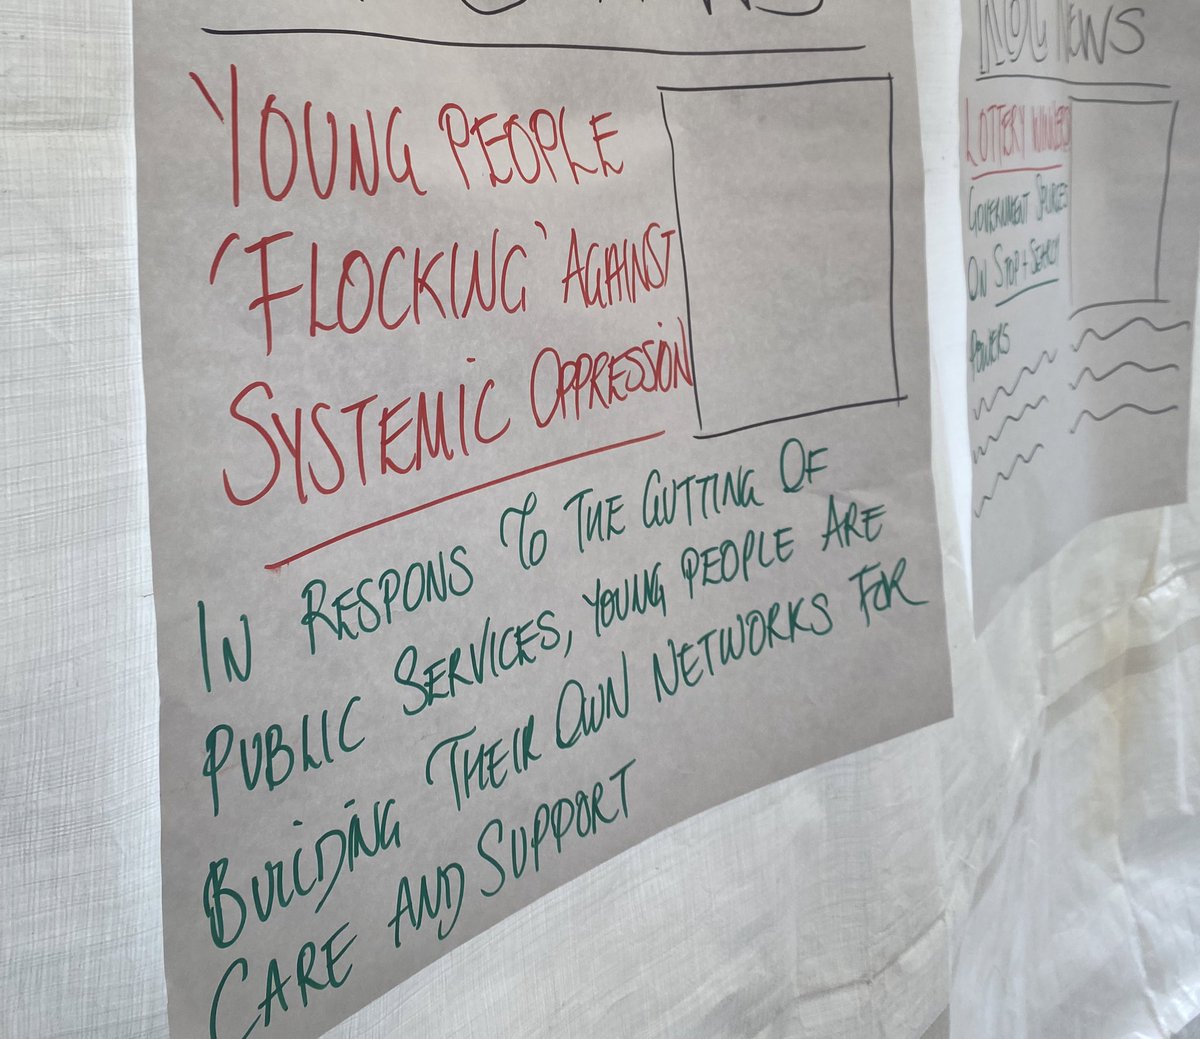 YOUNG PEOPLE
'FLOCKING' AGAINST
SYSTEMIC OPPRESSION
IN RESPONS TO THE GUTTING OF
PUBLIC SERVICES, YOUNG PEOPLE ARE
BUILDING THEIR OWN NETWORKS FOR
CARE AND SUPPORT
NEWS
LOTTERY WINNERS
GOVERNMENT SPURCES
ON STOP + SEARCH
POWERS